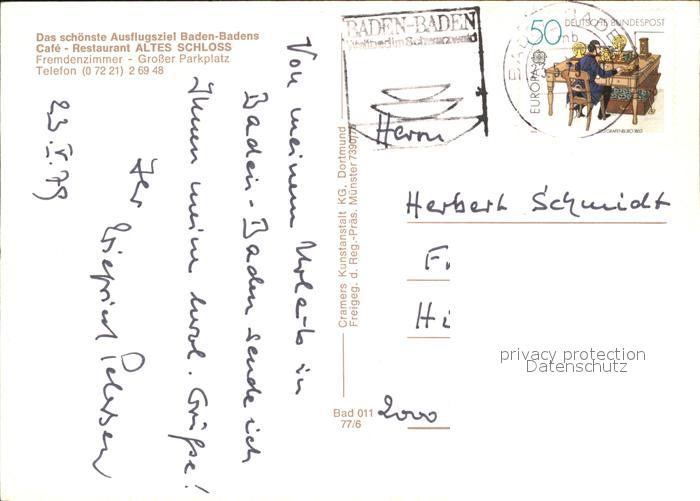 Das schönste Ausflugsziel Baden-Badens
Café - Restaurant ALTES SCHLOSS
Fremdenzimmer - Großer Parkplatz
Telefon (0 72 21) 2 69 48
23. V. 79
Von meinem Urlaub in
Baden-Baden sende ich
Ihnen meine herzl. Grüße!
Ihr
Siegfried Petersen
Cramers Kunstanstalt KG, Dortmund
Freigeg. d. Reg.-Präs. Münster 7390/77
Bad 011
77/6
BADEN-BADEN
Weltbad im Schwarzwald
50
DEUTSCHE BUNDESPOST
EUROPA
Herrn
Herbert Schmidt
F
Hi
2000
privacy protection
Datenschutz